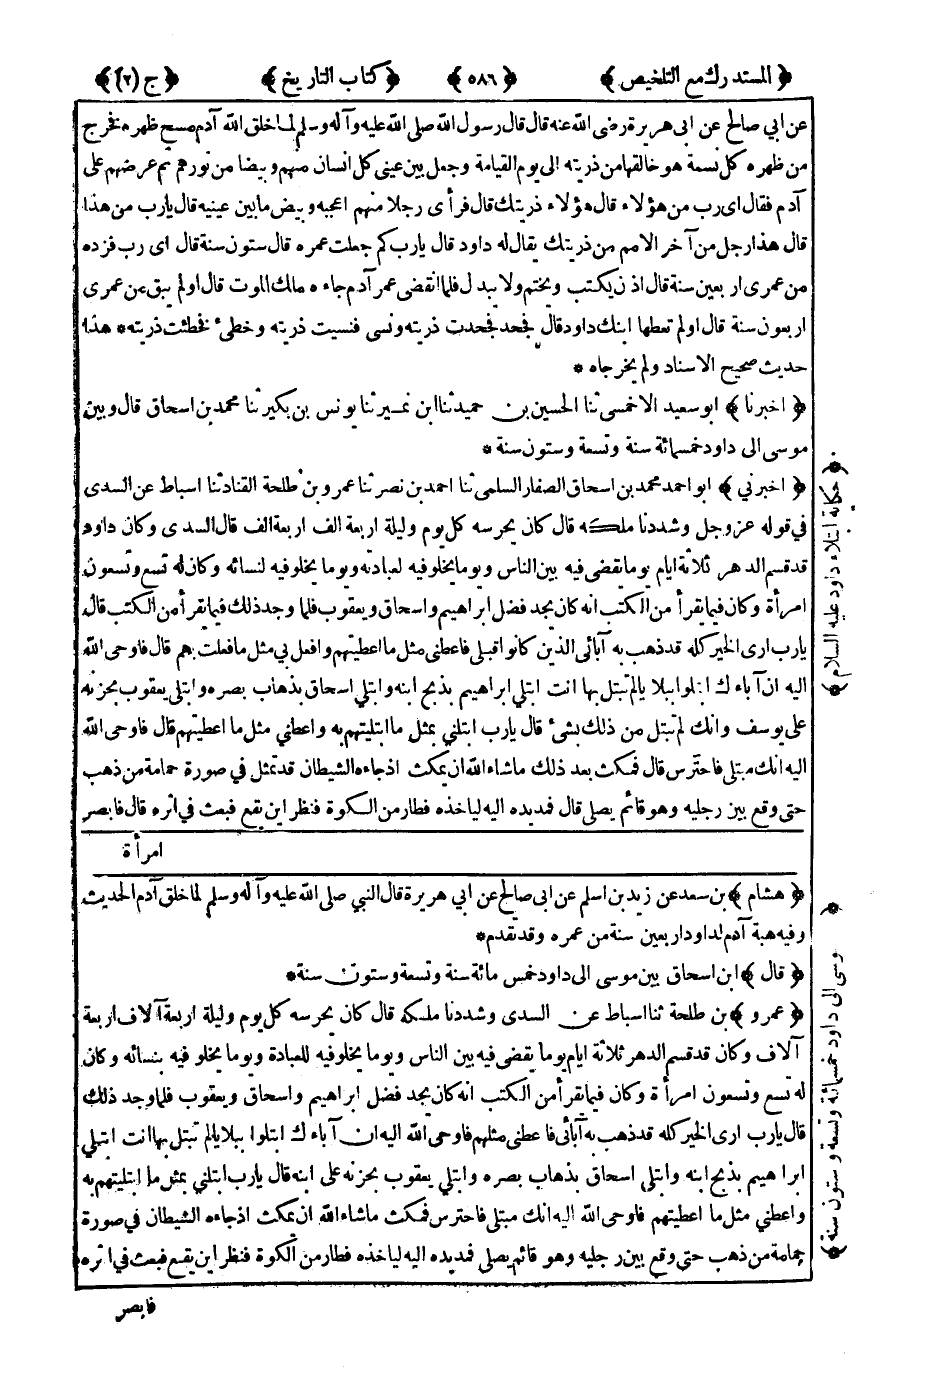 ﴿ المستدرك مع التلخيص ﴾ ﴿ ٥٨٦ ﴾ ﴿ كتاب التاريخ ﴾ ﴿ ج (٢) ﴾
عن ابي صالح عن ابى هريرة رضى الله عنه قال قال رسول الله صلى الله عليه وآله وسلم لما خلق الله آدم مسح ظهره فخرج
من ظهره كل نسمة هو خالقها من ذريته الى يوم القيامة وجعل بين عيني كل انسان منهم وبيضا من نورهم ثم عرضهم على
آدم فقال اى رب من هؤلاء قال هؤلاء ذريتك قال فرأى رجلا منهم اعجبه وبيض ما بين عينيه قال يارب من هذا
قال هذا رجل من آخر الامم من ذريتك يقال له داود قال يارب كم جعلت عمره قال ستون سنة قال اى رب فزده
من عمرى اربعين سنة قال اذن يكتب ويختم ولا يبدل فلما انقضى عمر آدم جاءه مالك الموت قال اولم يبق من عمرى
اربعون سنة قال اولم تعطها ابنك داود قال فجحد فجحدت ذريته ونسى فنسيت ذريته وخطئ فخطئت ذريته* هذا
حديث صحيح الاسناد ولم يخرجاه *
﴿ اخبرنا ﴾ ابو سعيد الاخمسى ثنا الحسين بن حميد ثنا ابن نمير ثنا يونس بن بكير ثنا محمد بن اسحاق قال وبين
موسى الى داود خمسمائة سنة وتسعة وستون سنة *
﴿ اخبرني ﴾ ابو احمد محمد بن اسحاق الصفار السلمى ثنا احمد بن نصر ثنا عمرو بن طلحة القناد ثنا اسباط عن السدى
في قوله عز وجل وشددنا ملكه قال كان يحرسه كل يوم وليلة اربعة الف اربعة الف قال السدى وكان داود
قد قسم الدهر ثلاثة ايام يوما يقضى فيه بين الناس ويوما يخلو فيه لعبادته ويوما يخلو فيه لنسائه وكان له تسع وتسعون
امرأة وكان فيما يقرأ من الكتب انه كان يجد فضل ابراهيم واسحاق ويعقوب فلما وجد ذلك فيما يقرأ من الكتب قال
يارب ارى الخير كله قد ذهب به آبائى الذين كانوا قبلى فاعطنى مثل ما اعطيتهم وافعل بي مثل ما فعلت بهم قال فاوحى الله
اليه ان آباءك ابتلوا ببلايا لم تبتل بها انت ابتلي ابراهيم بذبح ابنه وابتلي اسحاق بذهاب بصره وابتلي يعقوب بحزنه
على يوسف وانك لم تبتل من ذلك بشئ قال يارب ابتلني بمثل ما ابتليتهم به واعطني مثل ما اعطيتهم قال فاوحى الله
اليه انك مبتلى فاحترس قال فمكث بعد ذلك ماشاء الله ان يمكث اذ جاءه الشيطان قد تمثل في صورة حمامة من ذهب
حتى وقع بين رجليه وهو قائم يصلي قال فمد يده اليه لياخذه فطار من الكوة فنظر اين يقع فبعث في اثره قال فابصر
امرأة
﴿ هشام ﴾ بن سعد عن زيد بن اسلم عن ابى صالح عن ابي هريرة قال النبي صلى الله عليه وآله وسلم لما خلق آدم الحديث
وفيه هبة آدم لداود اربعين سنة من عمره وقد تقدم*
﴿ قال ﴾ ابن اسحاق بين موسى الى داود خمس مائة سنة وتسعة وستون سنة*
﴿ عمرو ﴾ بن طلحة ثنا اسباط عن السدى وشددنا ملكه قال كان يحرسه كل يوم وليلة اربعة آلاف اربعة
آلاف وكان قد قسم الدهر ثلاثة ايام يوما يقضى فيه بين الناس ويوما يخلو فيه للعبادة ويوما يخلو فيه بنسائه وكان
له تسع وتسعون امرأة وكان فيما يقرأ من الكتب انه كان يجد فضل ابراهيم واسحاق ويعقوب فلما وجد ذلك
قال يارب ارى الخير كله قد ذهب به آبائى فاعطنى مثلهم فاوحى الله اليه ان آباءك ابتلوا ببلايا لم تبتل بها انت ابتلي
ابراهيم بذبح ابنه وابتلى اسحاق بذهاب بصره وابتلي يعقوب بحزنه على ابنه قال يارب ابتلني بمثل ما ابتليتهم به
واعطني مثل ما اعطيتهم فاوحى الله اليه انك مبتلى فاحترس فمكث ماشاء الله ان يمكث اذ جاءه الشيطان في صورة
حمامة من ذهب حتى وقع بين رجليه وهو قائم يصلى فمد يده اليه لياخذه فطار من الكوة فنظر اين يقع فبعث في اثره
فابصر
﴿ حكاية ابتلاء داود عليه السلام ﴾
وسى الى داود خمسمائة وتسعة وستون سنة ﴾